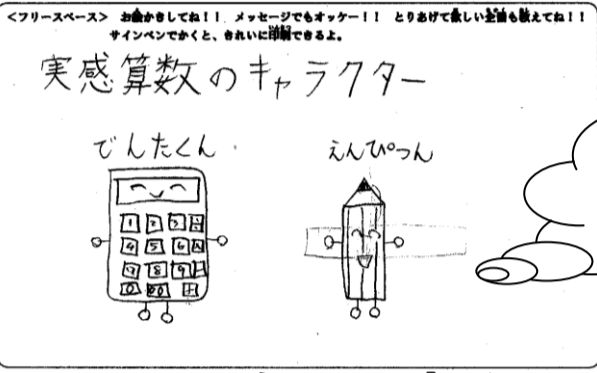 <フリースペース> お絵かきしてね！！ メッセージでもオッケー！！ とりあげて欲しい企画も教えてね！！
サインペンでかくと、きれいに印刷できるよ。
実感算数のキャラクター
でんたくん えんぴつん
1 2 3
4 5 6
7 8 9
0 00